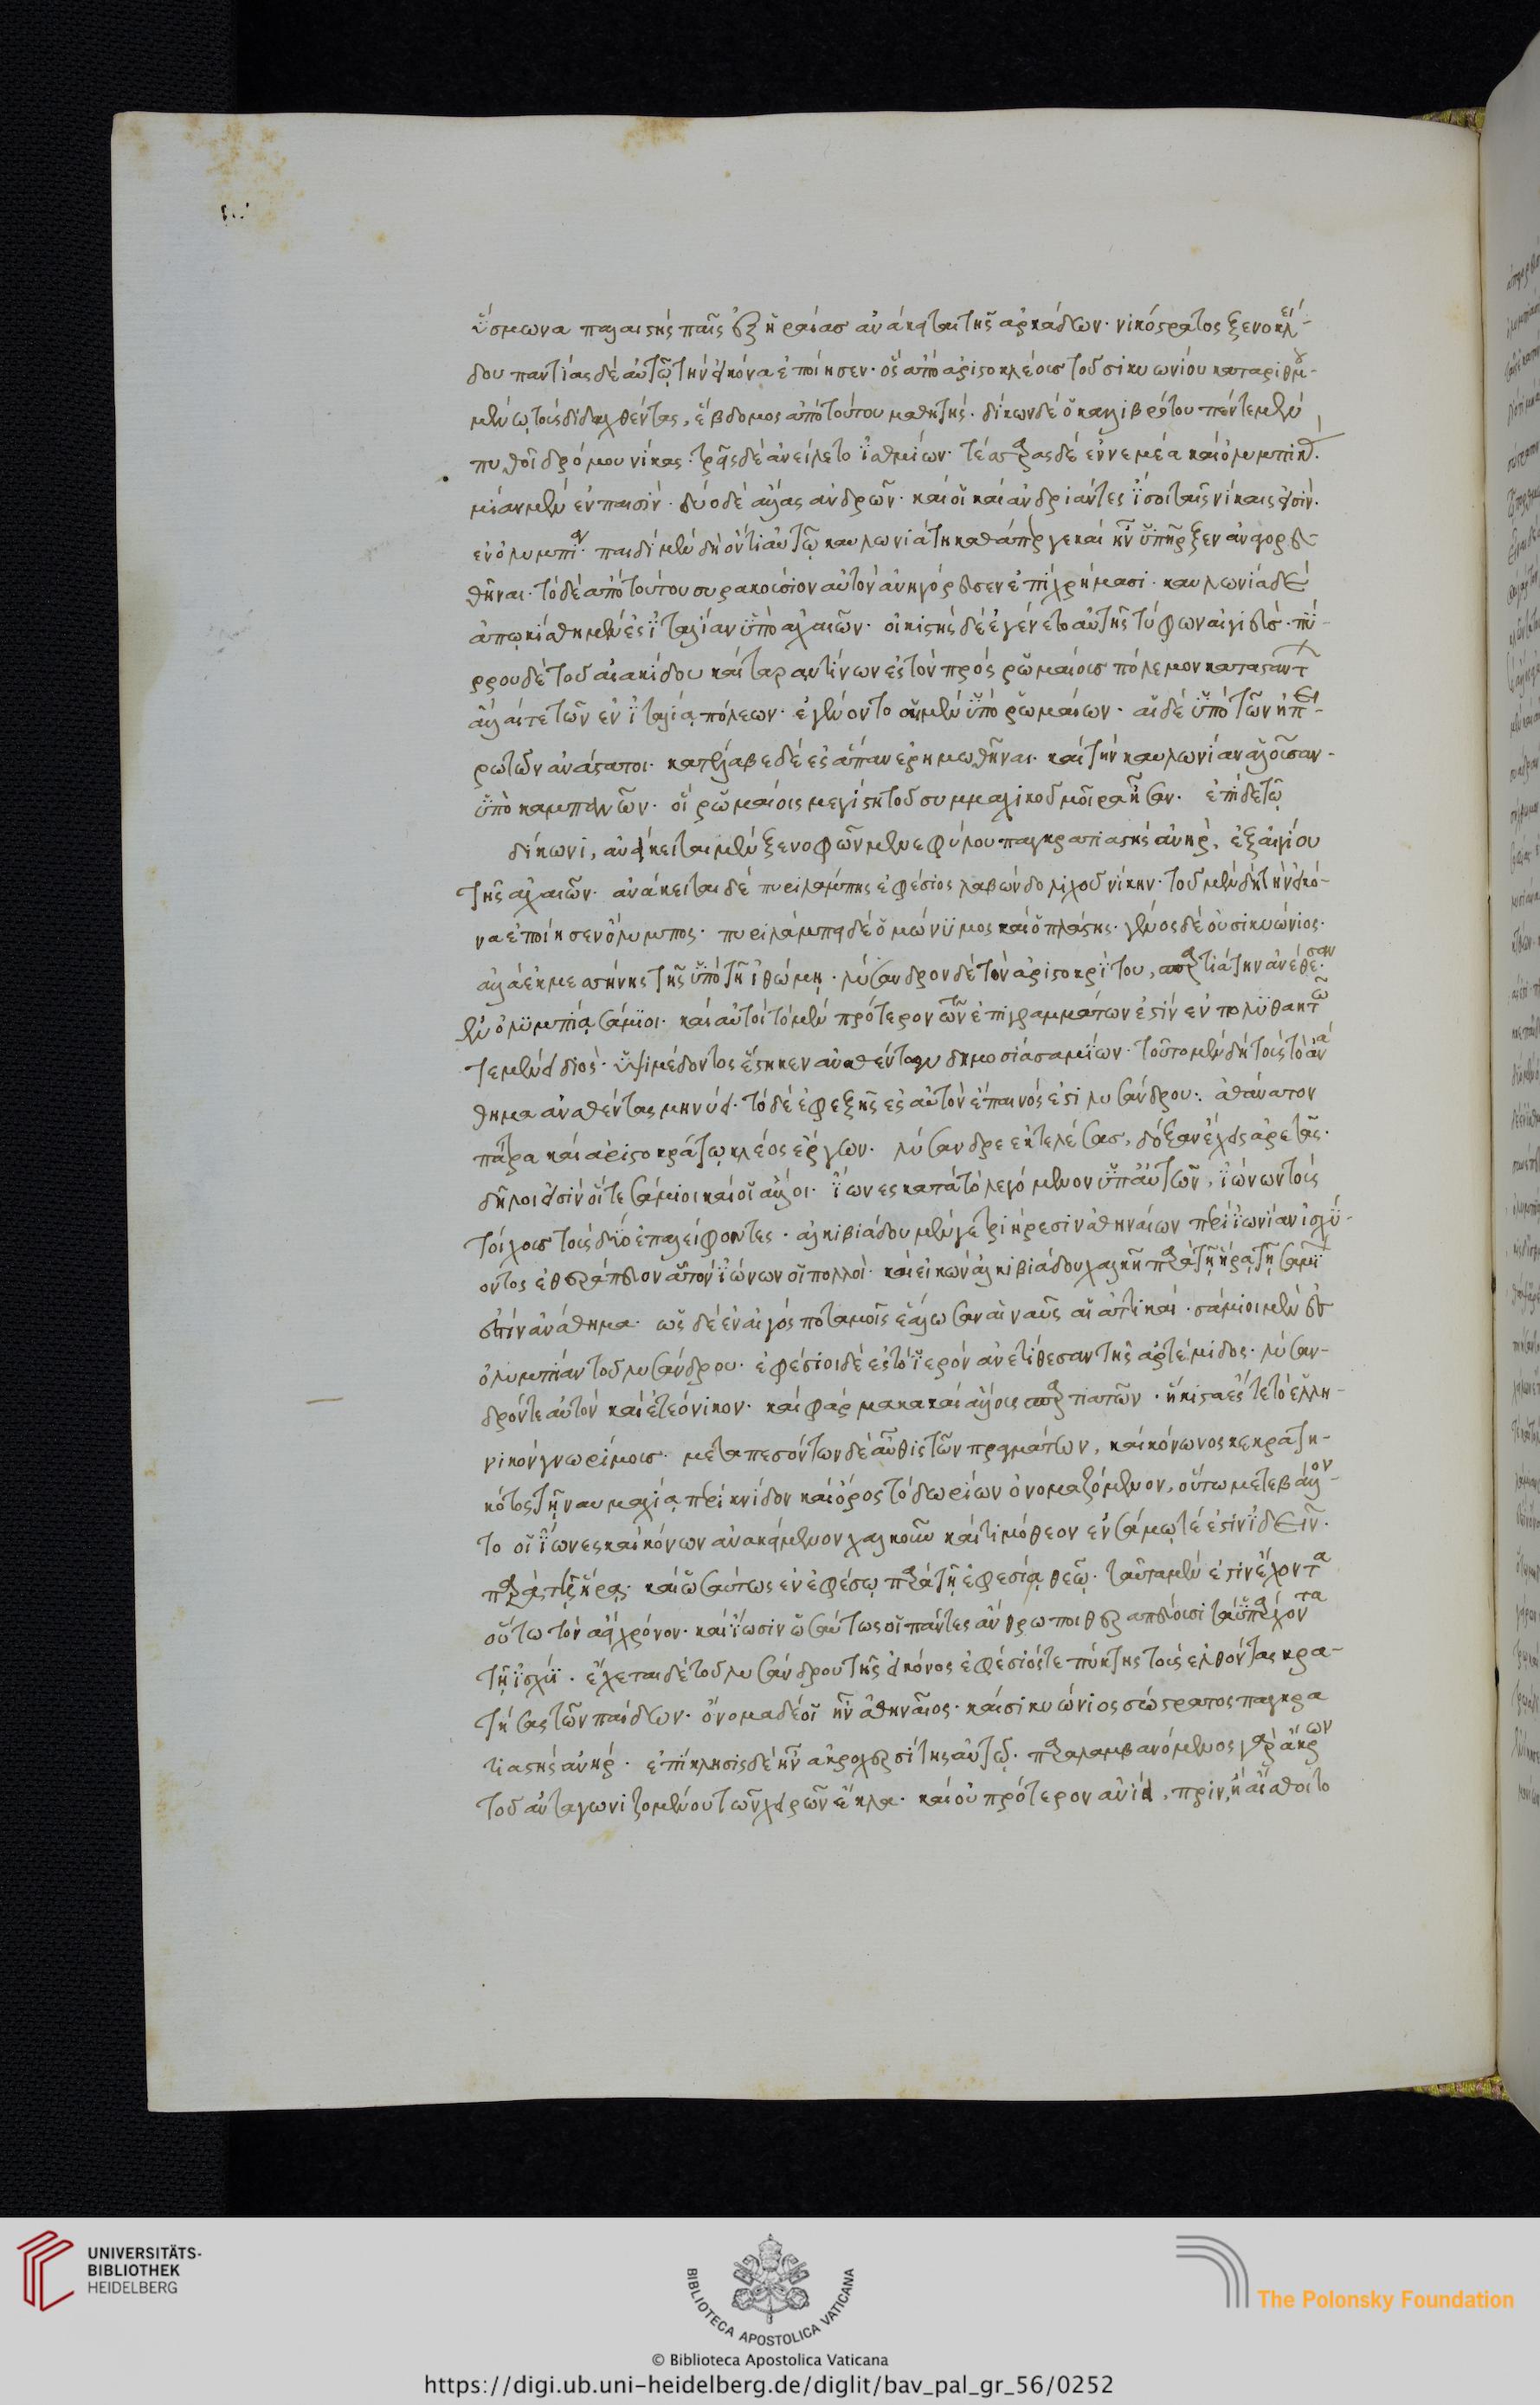 ὕσμωνα παλαιστὴς παῖς ἐξ ἡραίας ἀνάκειται τῆς ἀρκάδων· νικόστρατος ξενοκλεί-
δου παντίας δὲ αὐτῷ τὴν εἰκόνα ἐποίησεν· ὃς ἀπὸ ἀριστοκλέους τοῦ σικυωνίου καταριθμου-
μένῳ τοὺς διδαχθέντας, ἕβδομος ἀπὸ τούτου μαθητής· δίκων δὲ ὁ καλλιβρότου πέντε μὲν
πυθοῖ δρόμου νίκας· τρεῖς δὲ ἀνείλετο ἰσθμίων· τέσσαρας δὲ ἐν νεμέα καὶ ὀλυμπικὰς
μίαν μὲν ἐν παισίν· δύο δὲ ἄλλας ἀνδρῶν· καὶ οἱ καὶ ἀνδριάντες ἴσοι ταῖς νίκαις εἰσὶν
ἐν ὀλυμπίαν· παιδὶ μὲν δὴ ὄντι αὐτῷ καυλωνιάτη καθάπερ γε καὶ ἦν ὑπῆρξεν ἀναγορευ-
θῆναι· τὸ δὲ ἀπὸ τούτου συρακούσιον αὐτὸν ἀνηγόρευσεν ἐπὶ χρήμασι· καυλωνία δὲ
ἀπῳκίσθη μὲν ἐς ἰταλίαν ὑπὸ ἀχαιῶν· οἰκιστὴς δὲ ἐγένετο αὐτῆς τύφων αἰγιεύς· πύ-
ρρου δὲ τοῦ αἰακίδου καὶ ταραντίνων ἐς τὸν πρὸς ῥωμαίους πόλεμον καταστάντ
ἄλλαι τε τῶν ἐν ἰταλίᾳ πόλεων· ἐγένοντο αἱ μὲν ὑπὸ ῥωμαίων· αἱ δὲ ὑπὸ τῶν ἠπει-
ρωτῶν ἀνάστατοι· κατέλαβε δὲ ἐς ἅπαν ἐρημωθῆναι· καὶ τὴν καυλωνίαν ἁλοῦσαν·
ὑπὸ καμπανῶν· οἳ ῥωμαίοις μεγίστη τοῦ συμμαχικοῦ μοῖρα ἦσαν· ἐπὶ δὲ τῷ
δίκωνι, ἀνάκειται μὲν ξενοφῶν μενεφύλου παγκρατιαστὴς ἀνήρ, ἐξ αἰγίου
τῆς ἀχαιῶν· ἀνάκειται δὲ πυριλάμπης ἐφέσιος λαβὼν δολιχοῦ νίκην· τοῦ μὲν δὴ τὴν εἰκό-
να ἐποίησεν ὄλυμπος· πυριλάμπει δὲ ὁμώνυμος καὶ ὁ πλάστης· γένος δὲ οὐ σικυώνιος·
ἀλλὰ ἐκ μεσσήνης τῆς ὑπὸ τῇ ἰθώμη· λύσανδρον δὲ τὸν ἀριστοκρίτου, σπαρτιάτην ἀνέθεσαν
ἐν ὀλυμπίᾳ σάμιοι· καὶ αὐτοὶ τὸ μὲν πρότερον τῶν ἐπιγραμμάτων ἐστὶν ἐν πολυθαητῶ
τεμένει διὸς· ὑψιμέδοντος ἕστηκεν ἀναθέντων δημοσίᾳ σαμίων· τοῦτο μὲν δὴ τοὺς τὸ ἀνά
θημα ἀναθέντας μηνύει· τὸ δὲ ἐφεξῆς ἐς αὐτὸν ἔπαινός ἐστι λυσάνδρου· ἀθάνατον
πάτρα καὶ ἀριστοκράτῳ κλέος ἔργων· λύσανδρε ἐκτελέσας, δόξαν ἔχεις ἀρετᾶς·
δῆλοι εἰσὶν οἵ τε σάμιοι καὶ οἱ ἄλλοι· ἴωνες κατὰ τὸ λεγόμενον ὑπ' αὐτῶν, ἰώνων τοὺς
τοίχους τοὺς δύο ἐπαλείφοντες· ἀλκιβιάδου μέν γε τριήρεσιν ἀθηναίων περὶ ἰωνίαν ἰσχύ-
οντος ἐθεράπευον αὐτὸν ἰώνων οἱ πολλοί· καὶ εἰκὼν ἀλκιβιάδου χαλκῆ παρὰ τῇ ἥρᾳ τῇ σαμί
ἐστὶν ἀνάθημα· ὡς δὲ ἐν αἰγὸς ποταμοῖς ἑάλωσαν αἱ ναῦς αἱ ἀττικαί· σάμιοι μὲν ἐς
ὀλυμπίαν τοῦ λυσάνδρου· ἐφέσιοι δὲ ἐς τὸ ἱερὸν ἀνετίθεσαν τῆς ἀρτέμιδος· λύσαν-
δρόν τε αὐτὸν καὶ ἐτεόνικον· καὶ φάρμακα καὶ ἄλλους σπαρτιατῶν· ἥκιστα ἔς τε τὸ ἑλλη-
νικὸν γνωρίμους· μεταπεσόντων δὲ αὖθις τῶν πραγμάτων, καὶ κόνωνος κεκρατη-
κότος τῇ ναυμαχίᾳ περὶ κνίδον καὶ ὄρος τὸ δωρίων ὀνομαζόμενον, οὕτω μετεβάλλον-
το οἱ ἴωνες καὶ κόνων ἀνακείμενον χαλκοῦν καὶ τιμόθεον ἐν σάμῳ τέ ἐστιν ἰδεῖν·
παρὰ τῇ ἥρᾳ· καὶ ὡσαύτως ἐν ἐφέσῳ παρὰ τῇ ἐφεσίᾳ θεῷ· ταῦτα μέν ἐστιν ἔχοντα
οὕτω τὸν ἀεὶ χρόνον· καὶ ἴωσιν ὡσαύτως οἱ πάντες ἄνθρωποι θεραπεύουσι τὰ ὑπερέχοντα
τῇ ἰσχύϊ· ἔχεται δὲ τοῦ λυσάνδρου τῆς εἰκόνος ἐφέσιός τε πύκτης τοὺς ἐλθόντας κρα-
τήσας τῶν παίδων· ὄνομα δέ οἱ ἦν ἀθηναῖος· καὶ σικυώνιος σώστρατος παγκρα
τιαστὴς ἀνήρ· ἐπίκλησις δὲ ἦν ἀκροχερσίτης αὐτῷ· παραλαμβανόμενος γὰρ ἄκρων
τοῦ ἀνταγωνιζομένου τῶν χειρῶν ἔκλα· καὶ οὐ πρότερον ἀνίει, πρὶν ἢ αἴσθοιτο
UNIVERSITÄTS-
BIBLIOTHEK
HEIDELBERG
BIBLIOTECA APOSTOLICA VATICANA
The Polonsky Foundation
© Biblioteca Apostolica Vaticana
https://digi.ub.uni-heidelberg.de/diglit/bav_pal_gr_56/0252